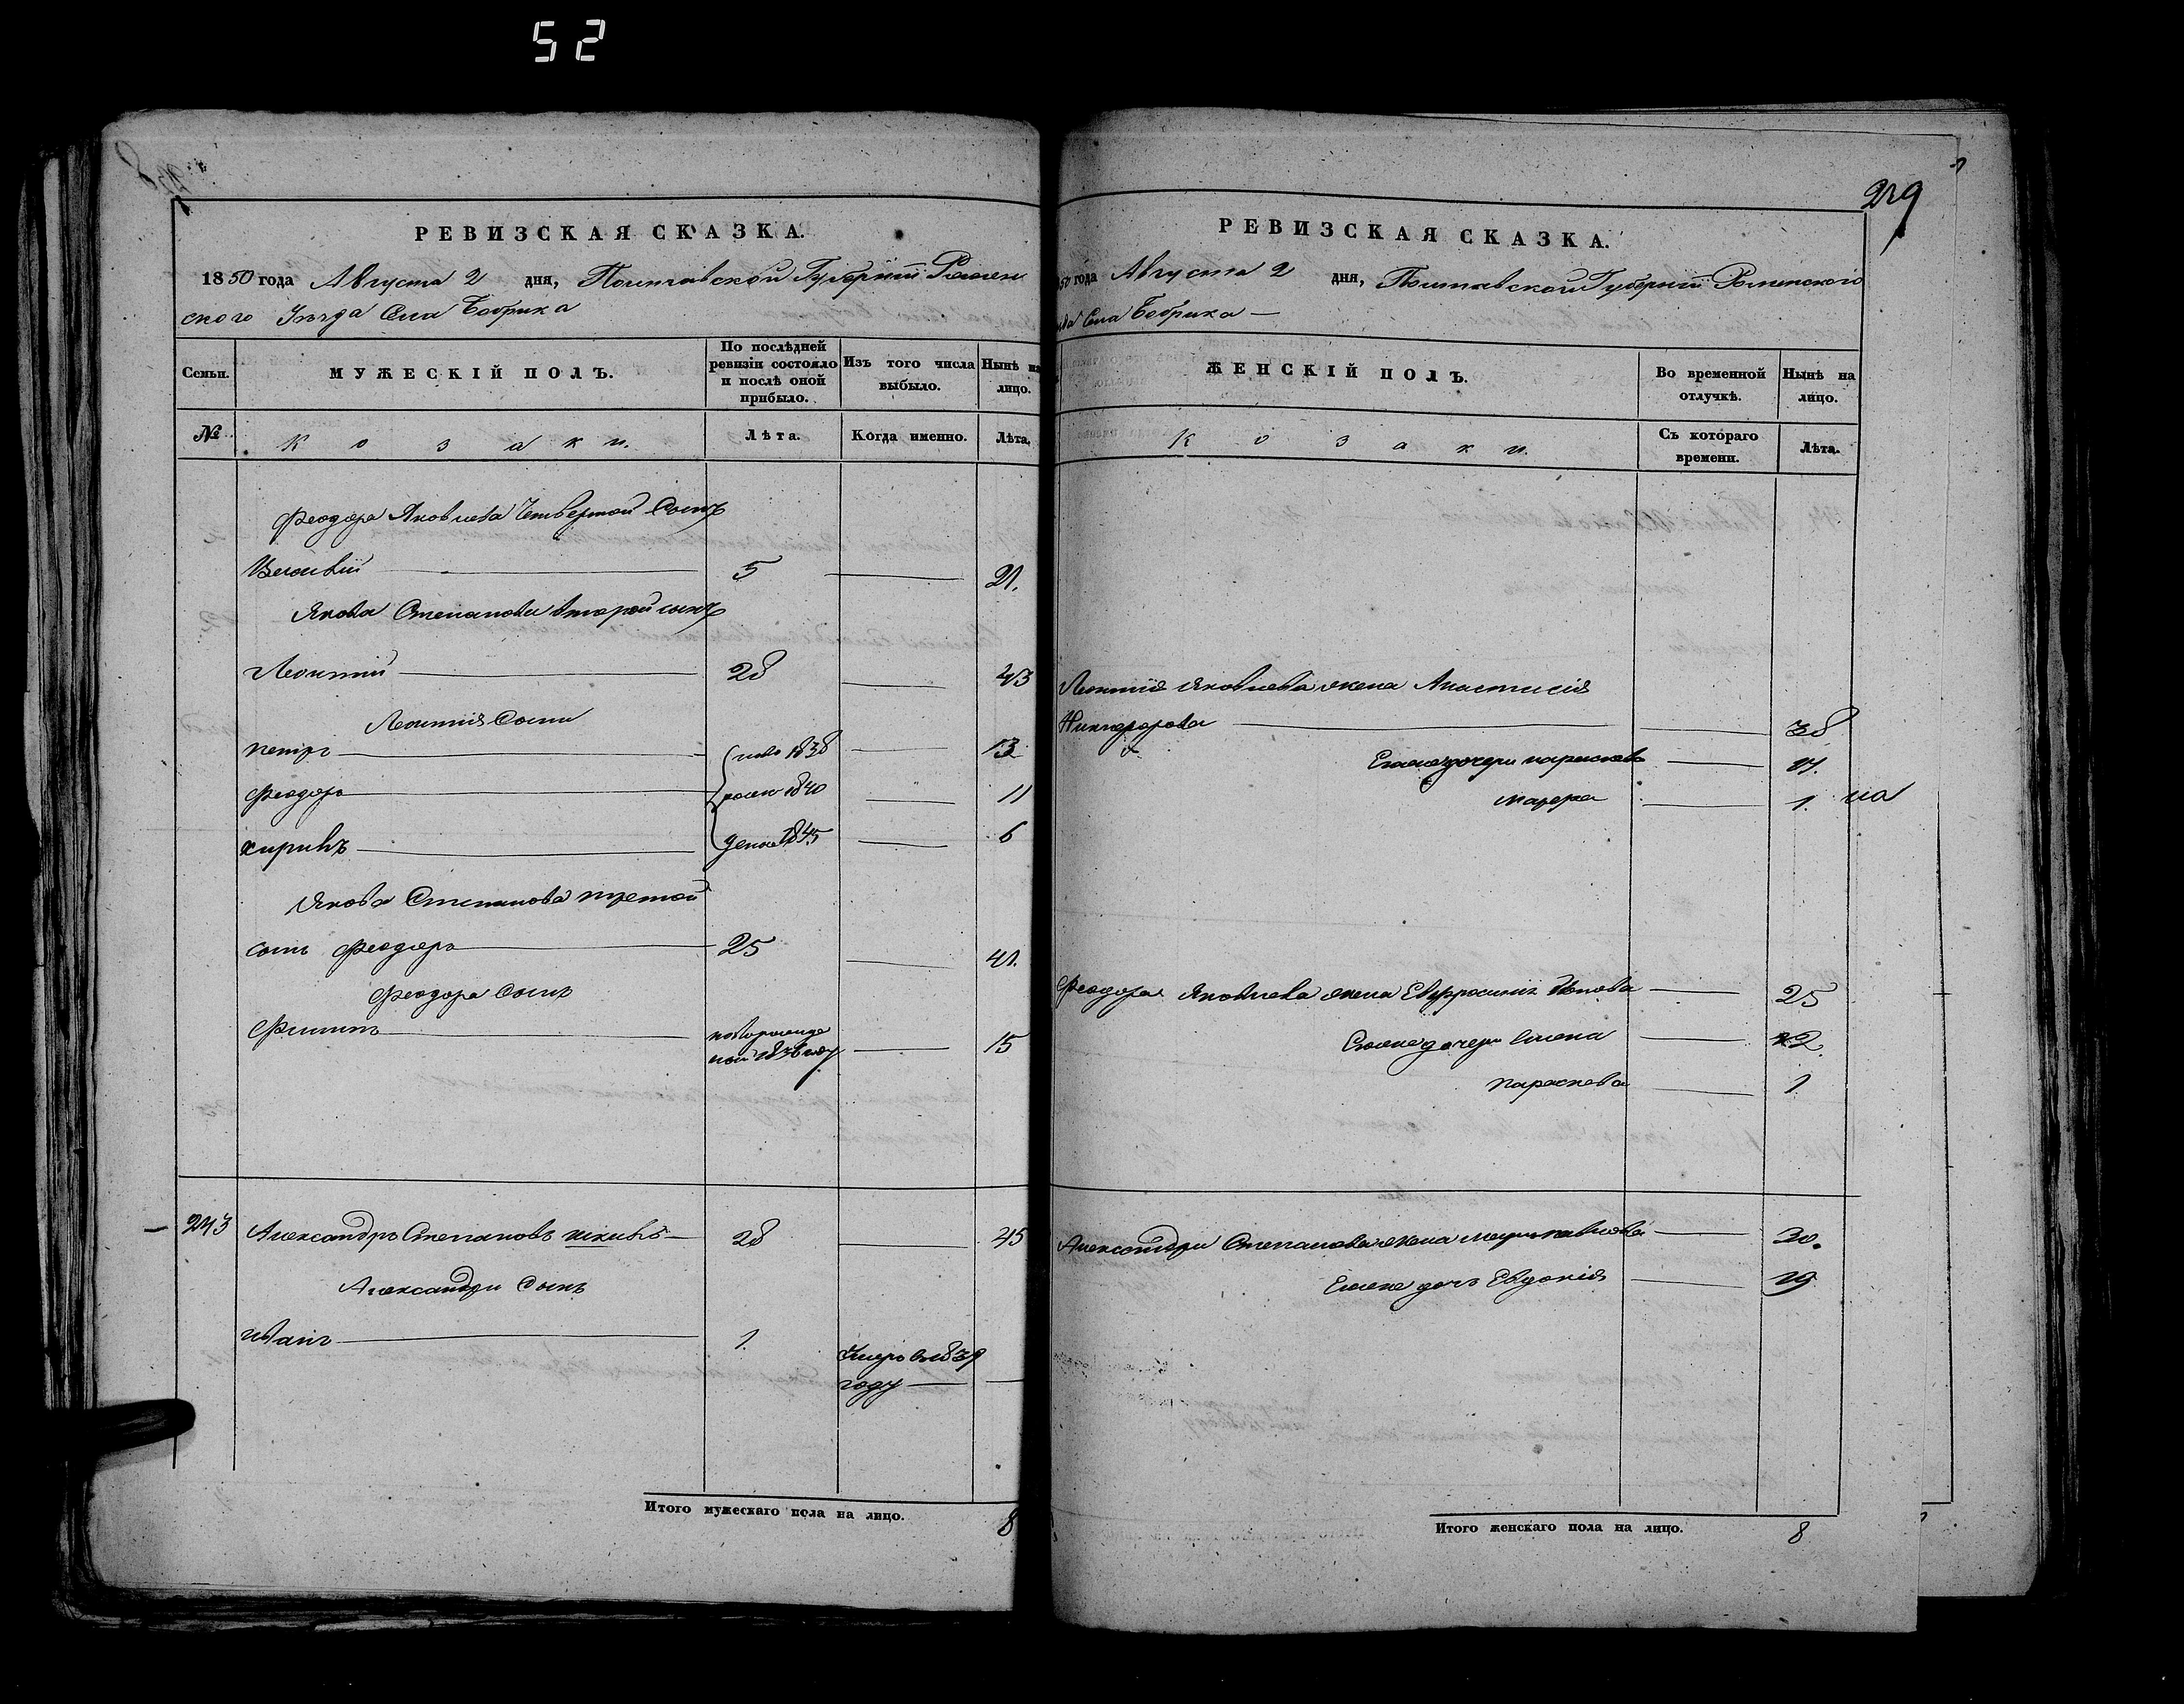 52
РЕВИЗСКАЯ СКАЗКА.
1850 года Августа 2 дня, Полтавской Губернiи Ромен
ского Уезда Села Бобрика
Семьи.
МУЖЕСКІЙ ПОЛЪ.
По послѣдней ревизіи состояло и послѣ оной прибыло.
Изъ того числа выбыло.
Нынѣ на лицо.
№
Козаки.
Лѣта.
Когда именно.
Лѣта.
Феодора Яковлева Четвертой Сынъ
5 21.
Якова Степанова второй сынъ
Леонтій 28 43
Леонтія Сыни
петръ ново 1838 13
Феодоръ рожен 1840 11
1845 6
Якова Степанова третой
сынъ Феодоръ 25 41.
Феодора Сынъ
Филипъ новорожде
ной 1836 году 15
243 Александръ Степановъ 28 45
Александри Сынъ
иванъ 1.
Умеръ въ 1839
году
Итого мужескаго пола на лицо. 8
239
РЕВИЗСКАЯ СКАЗКА.
50 года Августа 2 дня, Полтавской Губернiи Роменского
зда Села Бобрика
ЖЕНСКІЙ ПОЛЪ.
Во временной отлучкѣ.
Нынѣ на лицо.
Козаки.
Съ котораго времени.
Лѣта.
Леонтія Яковлева жена Анастасія
Никифорова 38
Егоже дочери параскева
1.
Феодора Яковлева жена Евфросинія 25
Егоже дочери 2.
параскева 1
Александри Степанова жена марія павлова 30.
Егоже дочъ Евдокія 19
Итого женскаго пола на лицо. 8